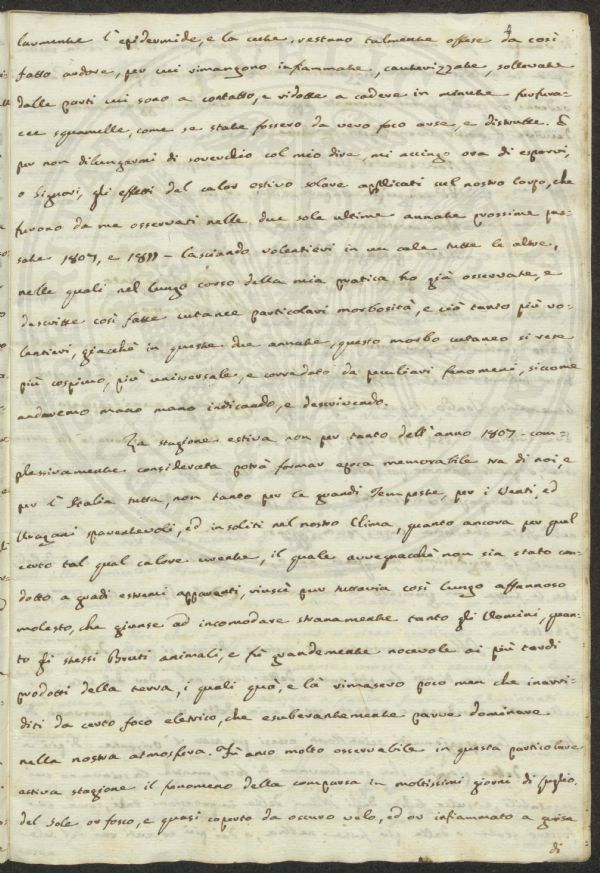 larmente l'epidermide, e la cute, restano talmente offese da così
fatto ardore, per cui rimangono infiammate, cauterizzate, sollevate
dalle parti cui sono a contatto, e ridotte a cadere in minute furfura-
cee squamelle, come se state fossero da vero foco arse, e distrutte. E
per non dilungarmi di soverchio col mio dire, mi accingo ora di esporvi,
o Signori, gli effetti del calor estivo solare applicati sul nostro corpo, che
furono da me osservati nelle due sole ultime annate prossime pas-
sate 1807, e 1811 - lasciando volentieri in un cale tutte le altre,
nelle quali nel lungo corso della mia pratica ho già osservate, e
descritte così fatte cutanee particolari morbosità, e ciò tanto più vo-
lentieri, giacchè in queste due annate, questo morbo cutaneo si rese
più cospicuo, più universale, e corredato da peculiari fenomeni, siccome
andaremo mano mano indicando, e descrivendo.
La stagione estiva non per tanto dell'anno 1807 - com-
plessivamente considerata potrà formar epoca memorabile tra di noi, e
per l'Italia tutta, non tanto per le grandi Tempeste, per i Venti, ed
Uragani spaventevoli, ed insoliti nel nostro Clima, quanto ancora per quel
certo tal qual calore urente, il quale avvegnacchè non sia stato con-
dotto a gradi estremi apparenti, riuscì pur tuttavia così lungo affannoso
molesto, che giunse ad incomodare stranamente tanto gli Uomini, quan-
to gli stessi Bruti animali, e fù grandemente nocevole ai più tardi
prodotti della terra, i quali quà, e là rimasero poco men che inarri-
diti da certo foco eletrico, che esuberantemente parve dominare
nella nostra atmosfera. Fù anco molto osservabile in questa particolare
estiva stagione il fenomeno della comparsa in moltissimi giorni di Luglio.
del Sole or fosco, e quasi coperto da oscuro velo, ed or infiammato a guisa
di